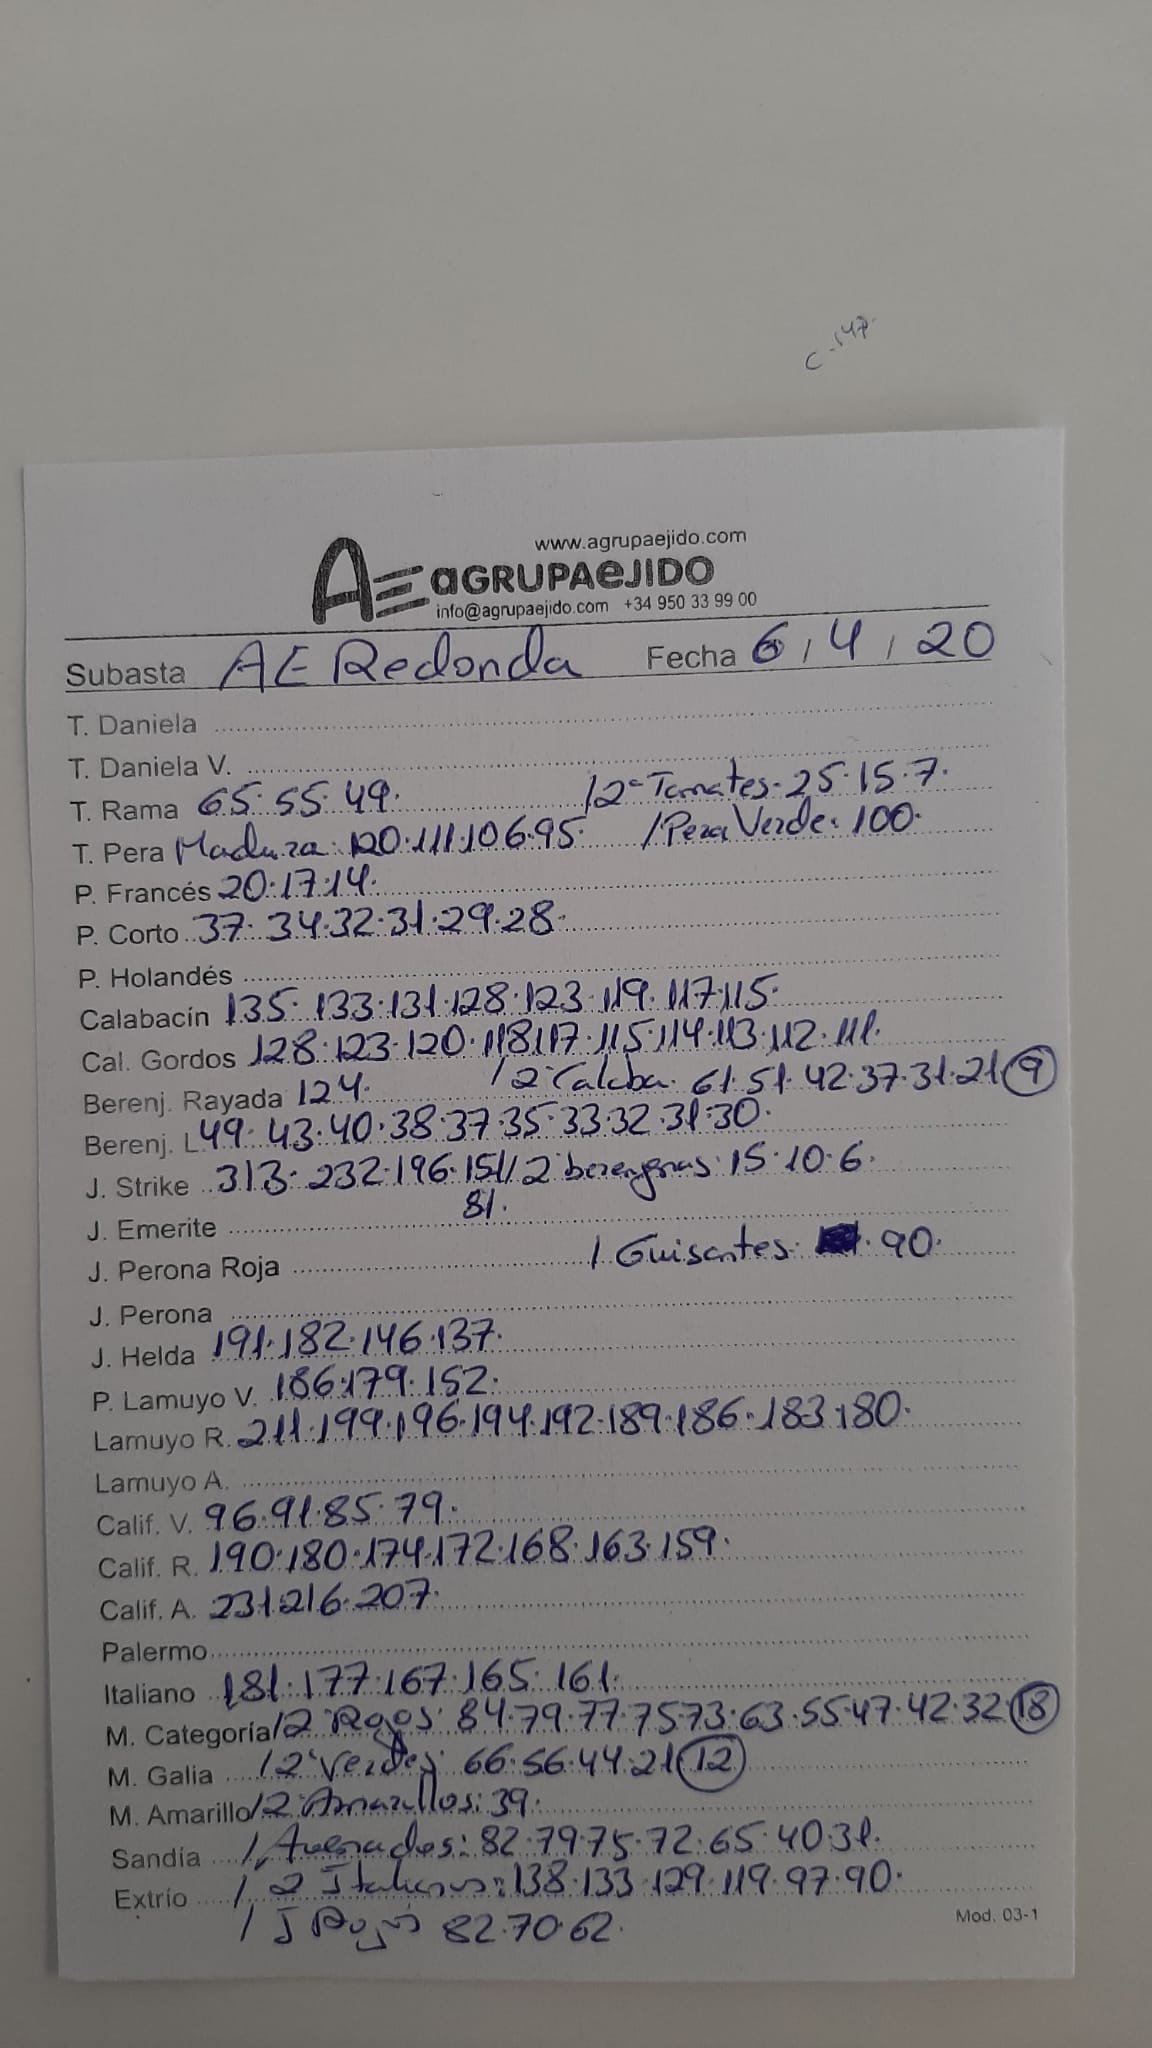 C-547.
www.agrupaejido.com
AE aGRUPAeJIDO
info@agrupaejido.com +34 950 33 99 00
Subasta AE Redonda Fecha 6/4/20
T. Daniela
T. Daniela V.
T. Rama 65.55.49. /2ª Tomates. 25.15.7.
T. Pera Madura: 120.111.106.95. /Pera Verde: 100.
P. Francés 20.17.14.
P. Corto 37.34.32.31.29.28.
P. Holandés
Calabacín 135.133.131.128.123.119.117.115.
Cal. Gordos 128.123.120.118.117.115.114.113.112.111.
Berenj. Rayada 124. /2ª Calaba. 61.51.42.37.31.21 9
Berenj. L 49.43.40.38.37.35.33.32.31.30.
J. Strike 313.232.196.151 /2ª berengenas: 15.10.6.
81.
J. Emerite
J. Perona Roja / Guisantes: 90.
J. Perona
J. Helda 191.182.146.137.
P. Lamuyo V. 186.179.152.
Lamuyo R. 211.199.196.194.192.189.186.183.180.
Lamuyo A.
Calif. V. 96.91.85.79.
Calif. R. 190.180.174.172.168.163.159.
Calif. A. 231.216.207.
Palermo
Italiano 181.177.167.165.161.
M. Categoría /2ª Rojos: 84.79.77.75.73.63.55.47.42.32 18
M. Galia /2ª Verdes: 66.56.44.21 12
M. Amarillo /2ª Amarillos: 39.
Sandía / Asurados: 82.79.75.72.65.40.31.
Extrío / 2 Italianos: 138.133.129.119.97.90.
/ I Rojos 82.70.62.
Mod. 03-1